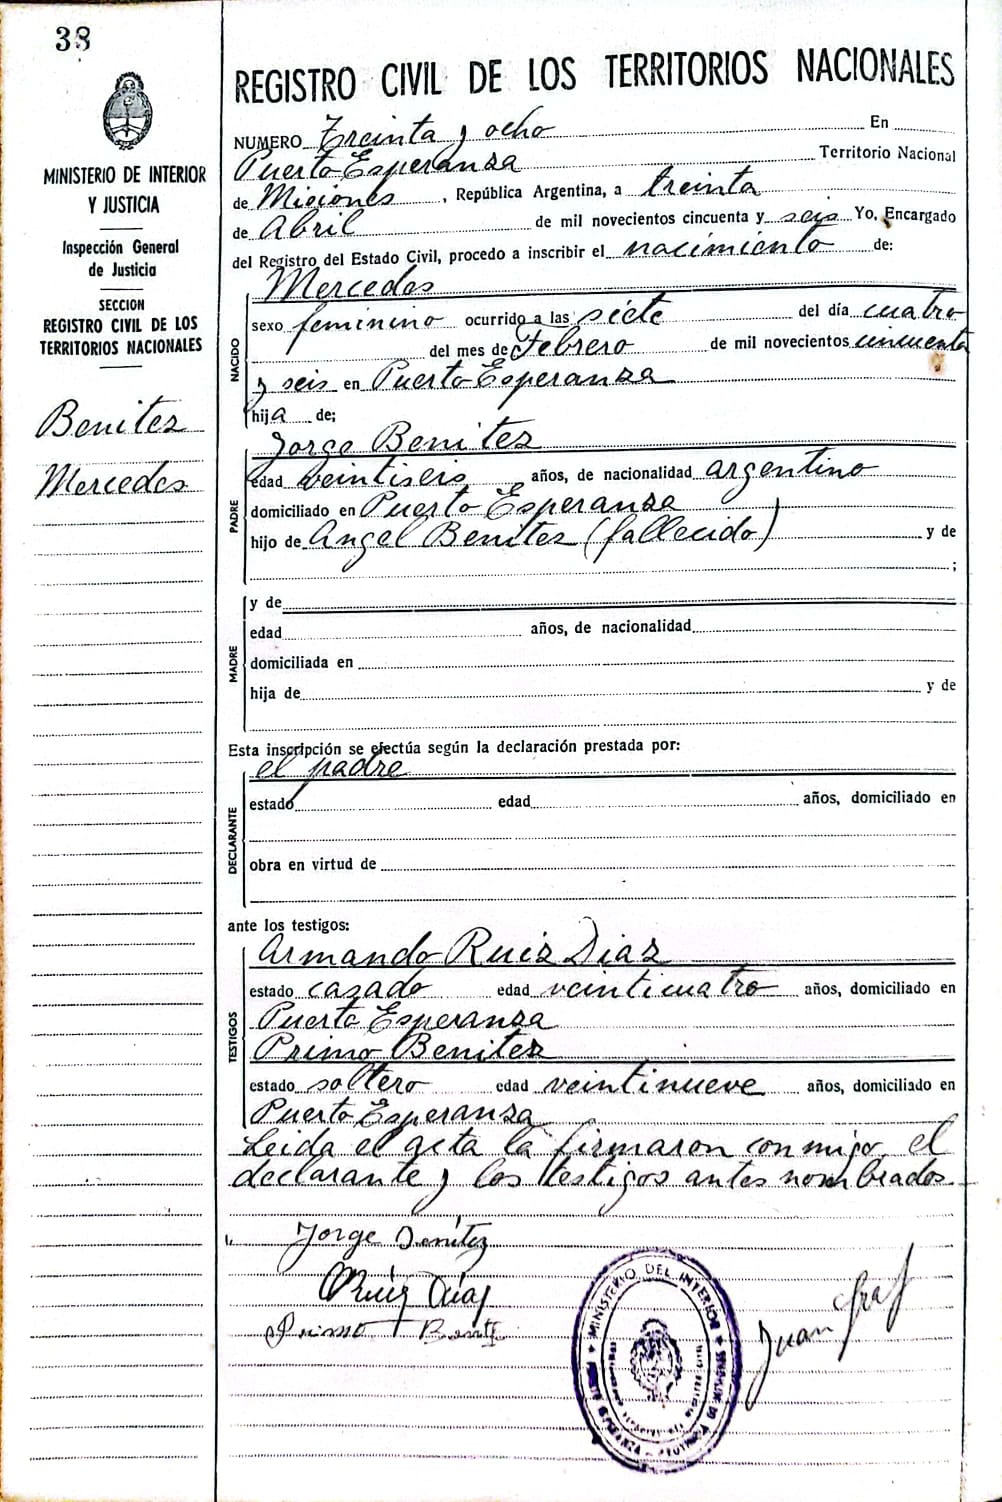 38
MINISTERIO DE INTERIOR
Y JUSTICIA
Inspección General
de Justicia
SECCION
REGISTRO CIVIL DE LOS
TERRITORIOS NACIONALES
Benitez
Mercedes
REGISTRO CIVIL DE LOS TERRITORIOS NACIONALES
NUMERO Treinta y ocho En
Puerto Esperanza Territorio Nacional
de Misiones, República Argentina, a treinta
de Abril de mil novecientos cincuenta y seis Yo, Encargado
del Registro del Estado Civil, procedo a inscribir el nacimiento de:
NACIDO
Mercedes
sexo feminino ocurrido a las siete del día cuatro
del mes de Febrero de mil novecientos cincuenta
y seis en Puerto Esperanza
hija de;
PADRE
Jorge Benitez
edad veintiseis años, de nacionalidad argentino
domiciliado en Puerto Esperanza
hijo de Angel Benitez (fallecido) y de
;
MADRE
y de
edad años, de nacionalidad
domiciliada en
hija de y de
Esta inscripción se efectúa según la declaración prestada por:
DECLARANTE
el padre
estado edad años, domiciliado en
obra en virtud de
ante los testigos:
TESTIGOS
Armando Ruiz Diaz
estado cazado edad veinticuatro años, domiciliado en
Puerto Esperanza
Primo Benitez
estado soltero edad veintinueve años, domiciliado en
Puerto Esperanza
Leida el acta la firmaron conmigo, el
declarante y los testigos antes nombrados.
Jorge Benítez
Ruíz Díaz
Primo Benitez
Juan Graf
MINISTERIO DEL INTERIOR